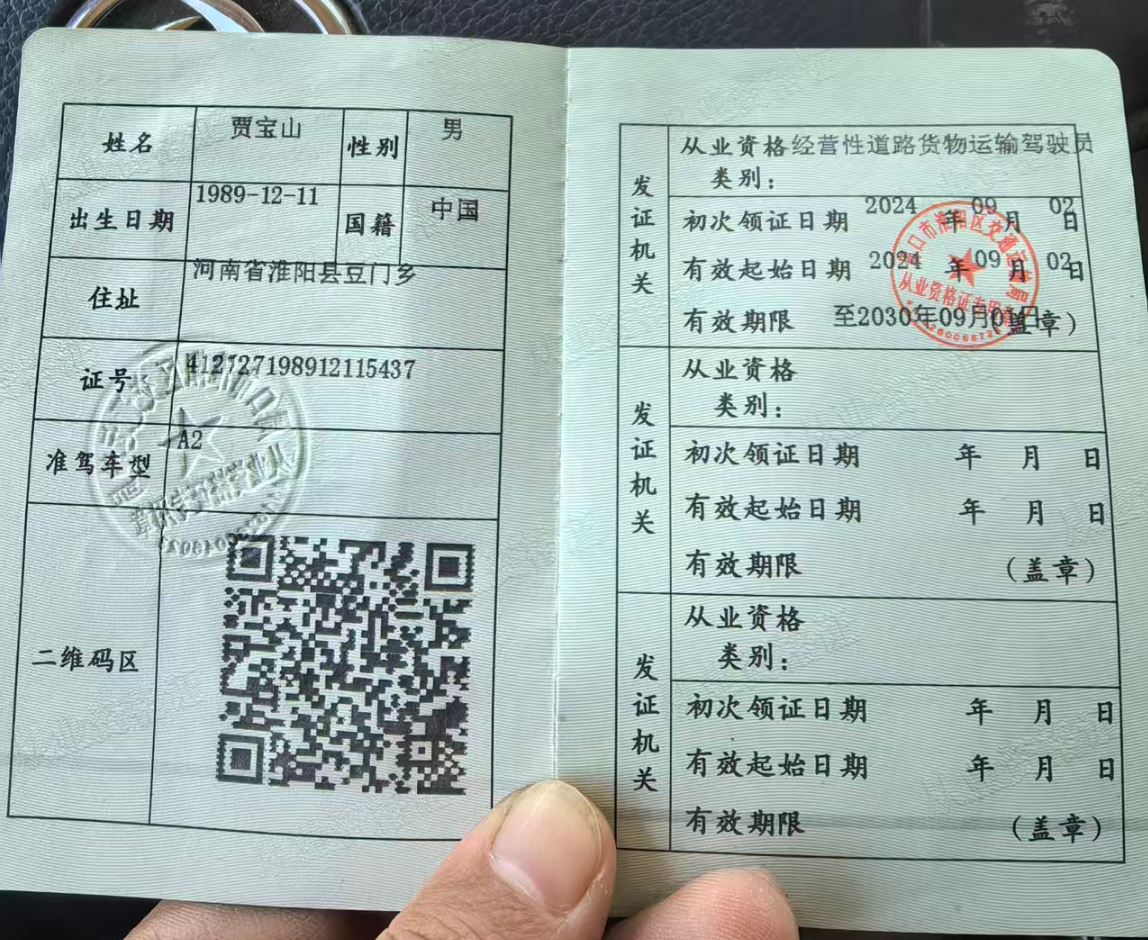 姓名 贾宝山 性别 男
出生日期 1989-12-11 国籍 中国
住址 河南省淮阳县豆门乡
证号 412727198912115437
准驾车型 A2
二维码区
发证机关
从业资格类别: 经营性道路货物运输驾驶员
初次领证日期 2024年09月02日
有效起始日期 2024年09月02日
有效期限 至2030年09月01日(盖章)
淮阳区交通运输局
从业资格证专用章
发证机关
从业资格
类别:
初次领证日期 年 月 日
有效起始日期 年 月 日
有效期限 (盖章)
发证机关
从业资格
类别:
初次领证日期 年 月 日
有效起始日期 年 月 日
有效期限 (盖章)